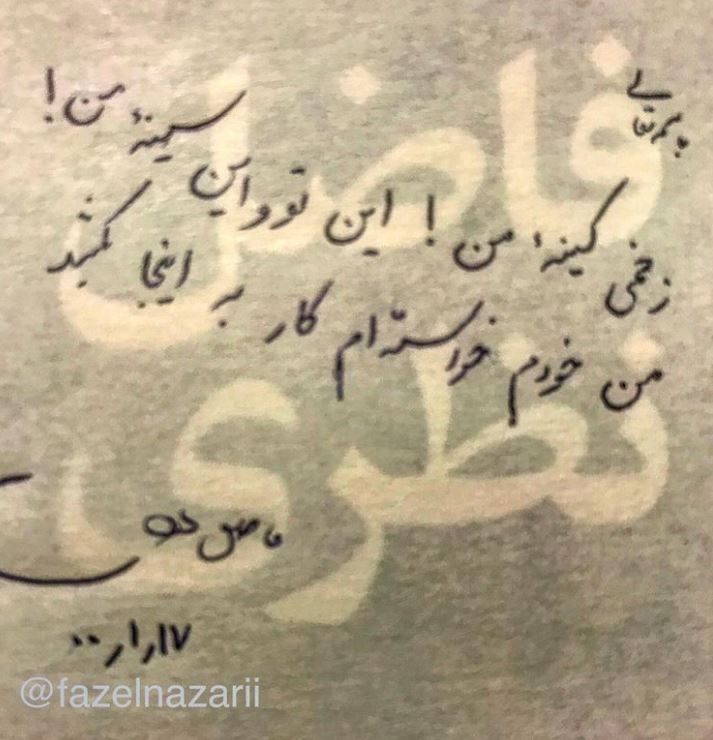 بسمه تعالی
زخمی کینهٔ من! این تو و این سینهٔ من!
من خودم خواسته‌ام کار به اینجا بکشد
فاضل نظری
۱۷ / ۱ / ۰۰
فاضل
نظری
@fazelnazarii